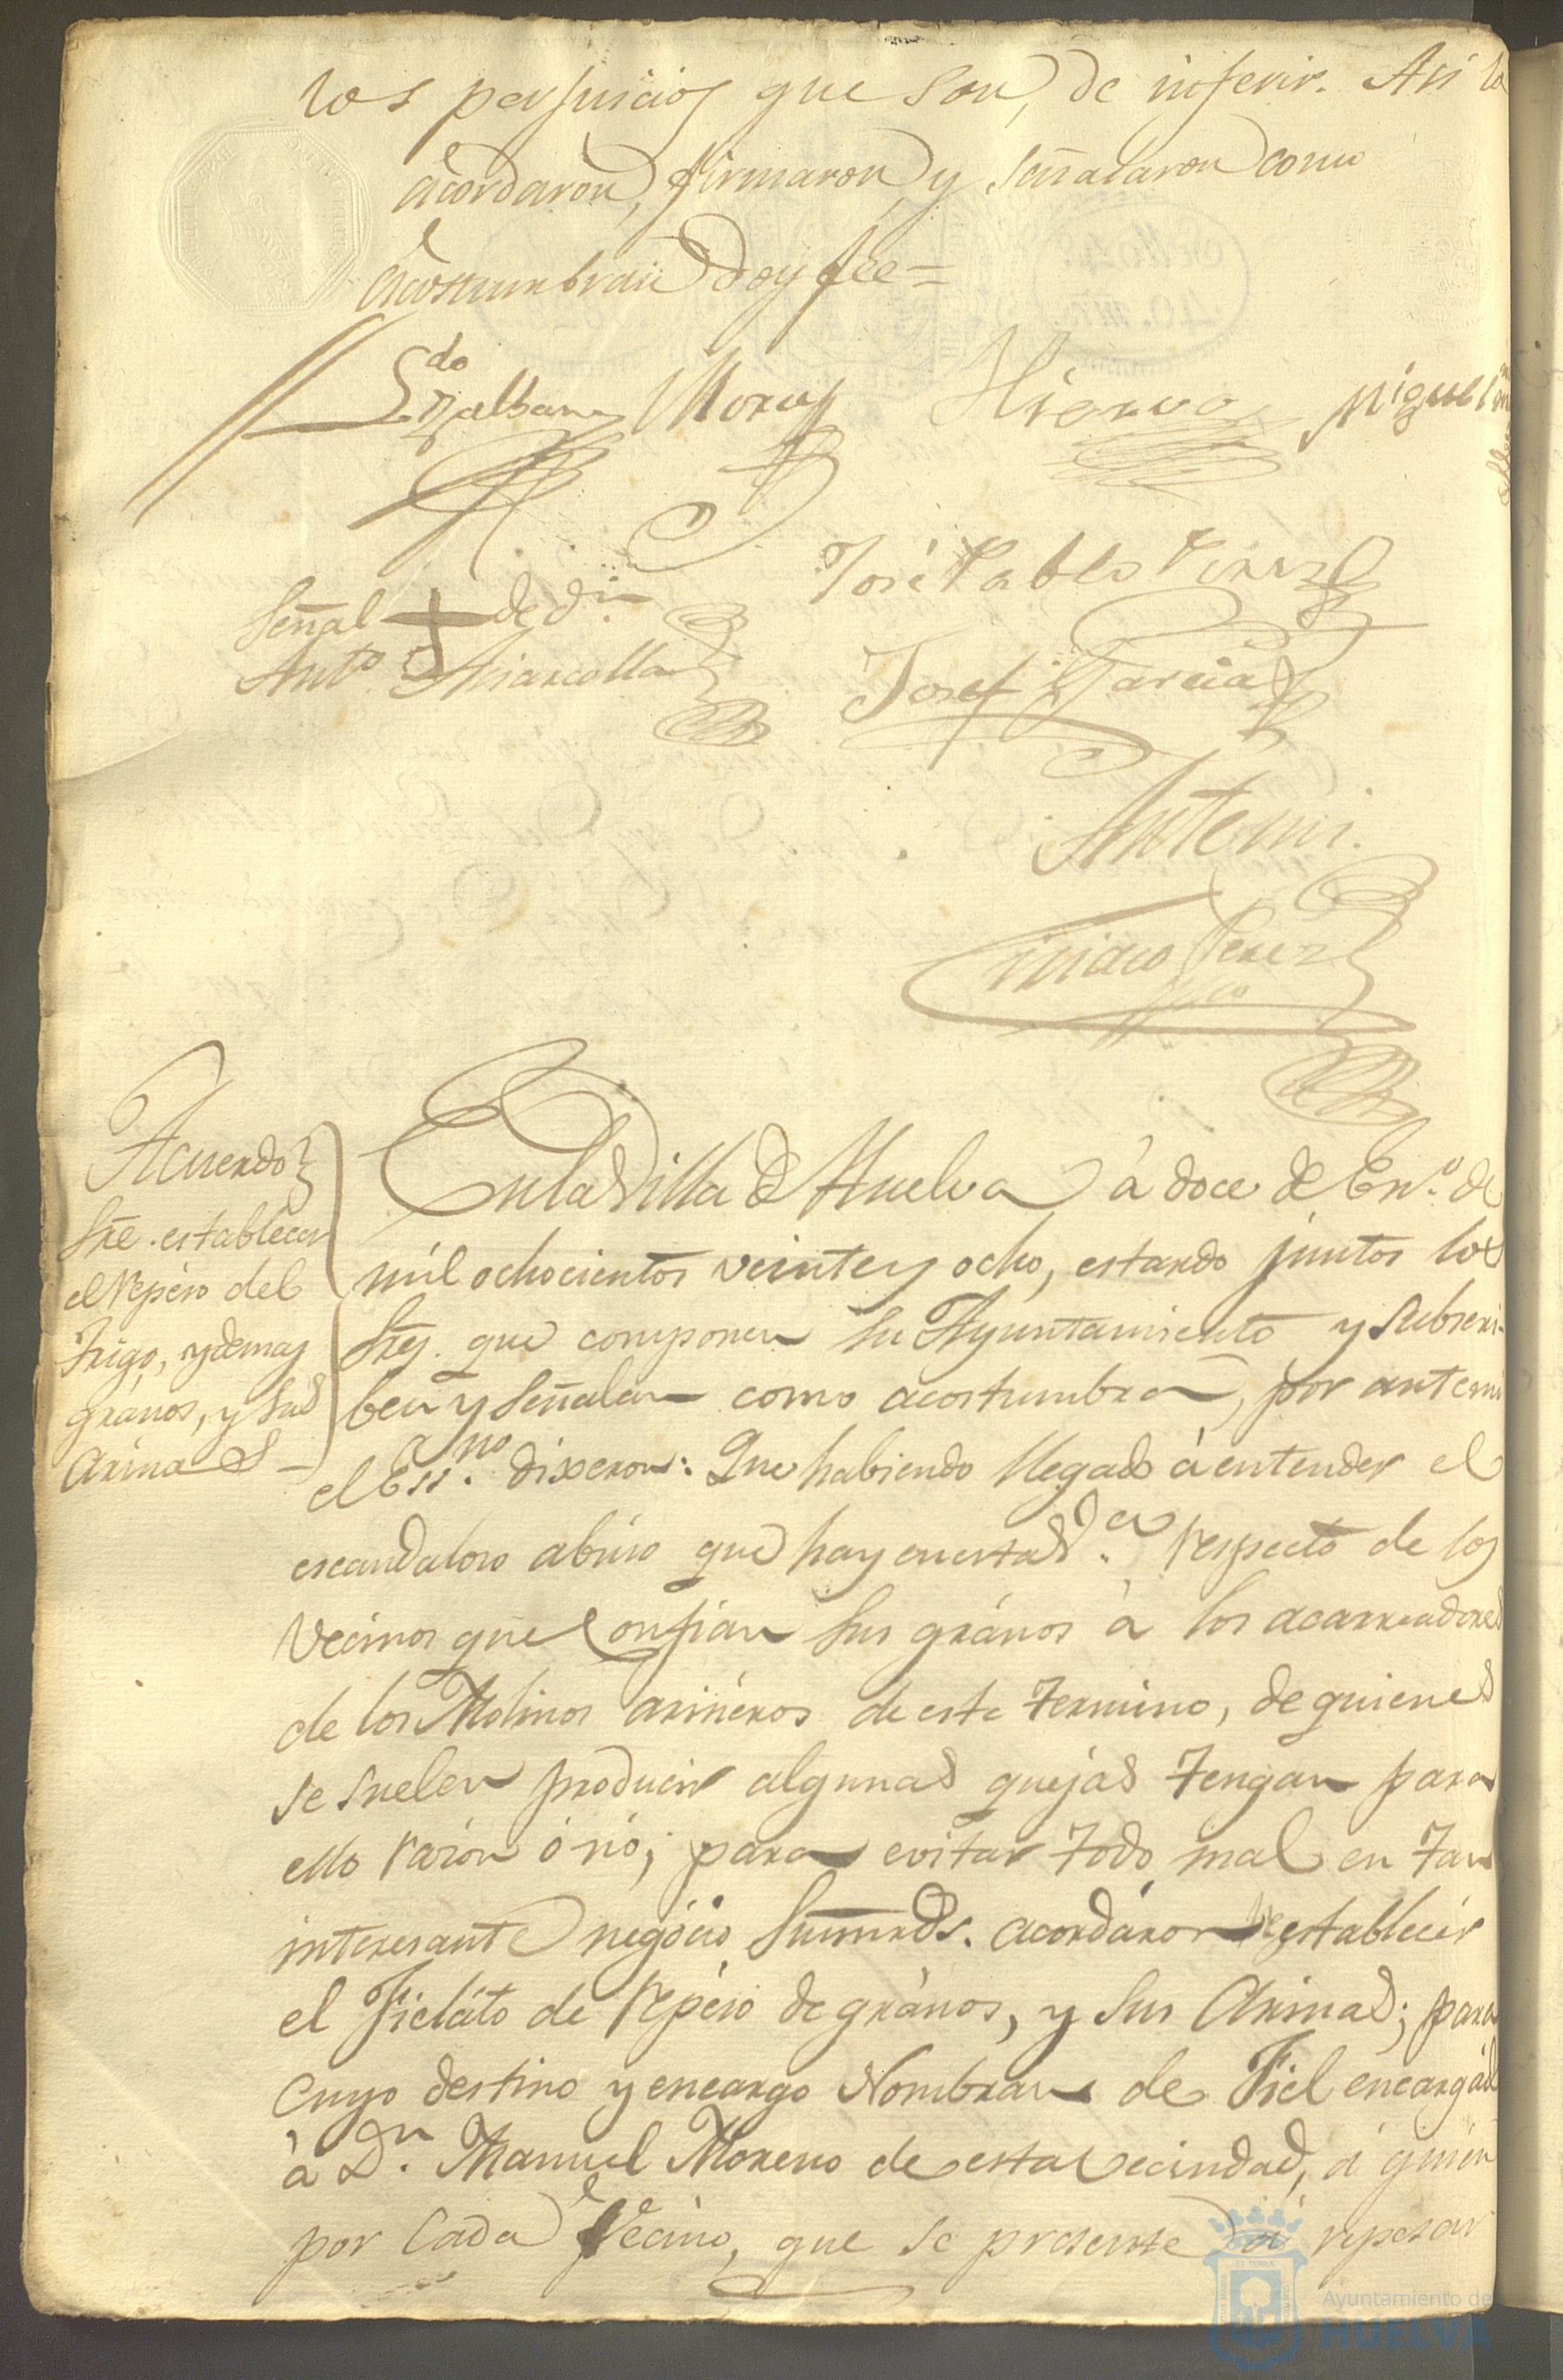 los perjuicios que son, de inferir. Asi lo
acordaron, firmaron, y señalaron como
acostumbran doy fee=
Moray Hierro Miguel
José Pablo Perez
Señal + de dn.
Anto.
Josef Garcia
Antemi.
Ciriaco Perez
Acuerdo
Sre. establecer
el repéso del
Trigo, y demas
grános, y sus
Arinas
En la Villa de Huelva à doce de En.o de
mil ochocientos veinte y ocho, estando juntos los
Sres. que componen su Ayuntamiento y subscri-
ben y señalan como acostumbran, por antemi
el Essno. dixeron: Que habiendo llegado à entender el
escandaloso abúso que hay en esta Va. respecto de los
Vecinos que confian sus grános à los acarreadores
de los Molinos arinéros de este termino, de quienes
se suelen producir algunas quejas tengan para
ello razon ó nó; para evitar todo mal en tan
interesante negócio Sumrds. acordáron restablecér
el Fieláto de repéso de grános, y sus Arinas; para
cuyo destino y encargo Nombran de Fiel encargád
à Dn. Manuel Moreno de esta Vecindad, á quien
por cada Vecino, que se presente à repesar
Ayuntamiento de
HUELVA